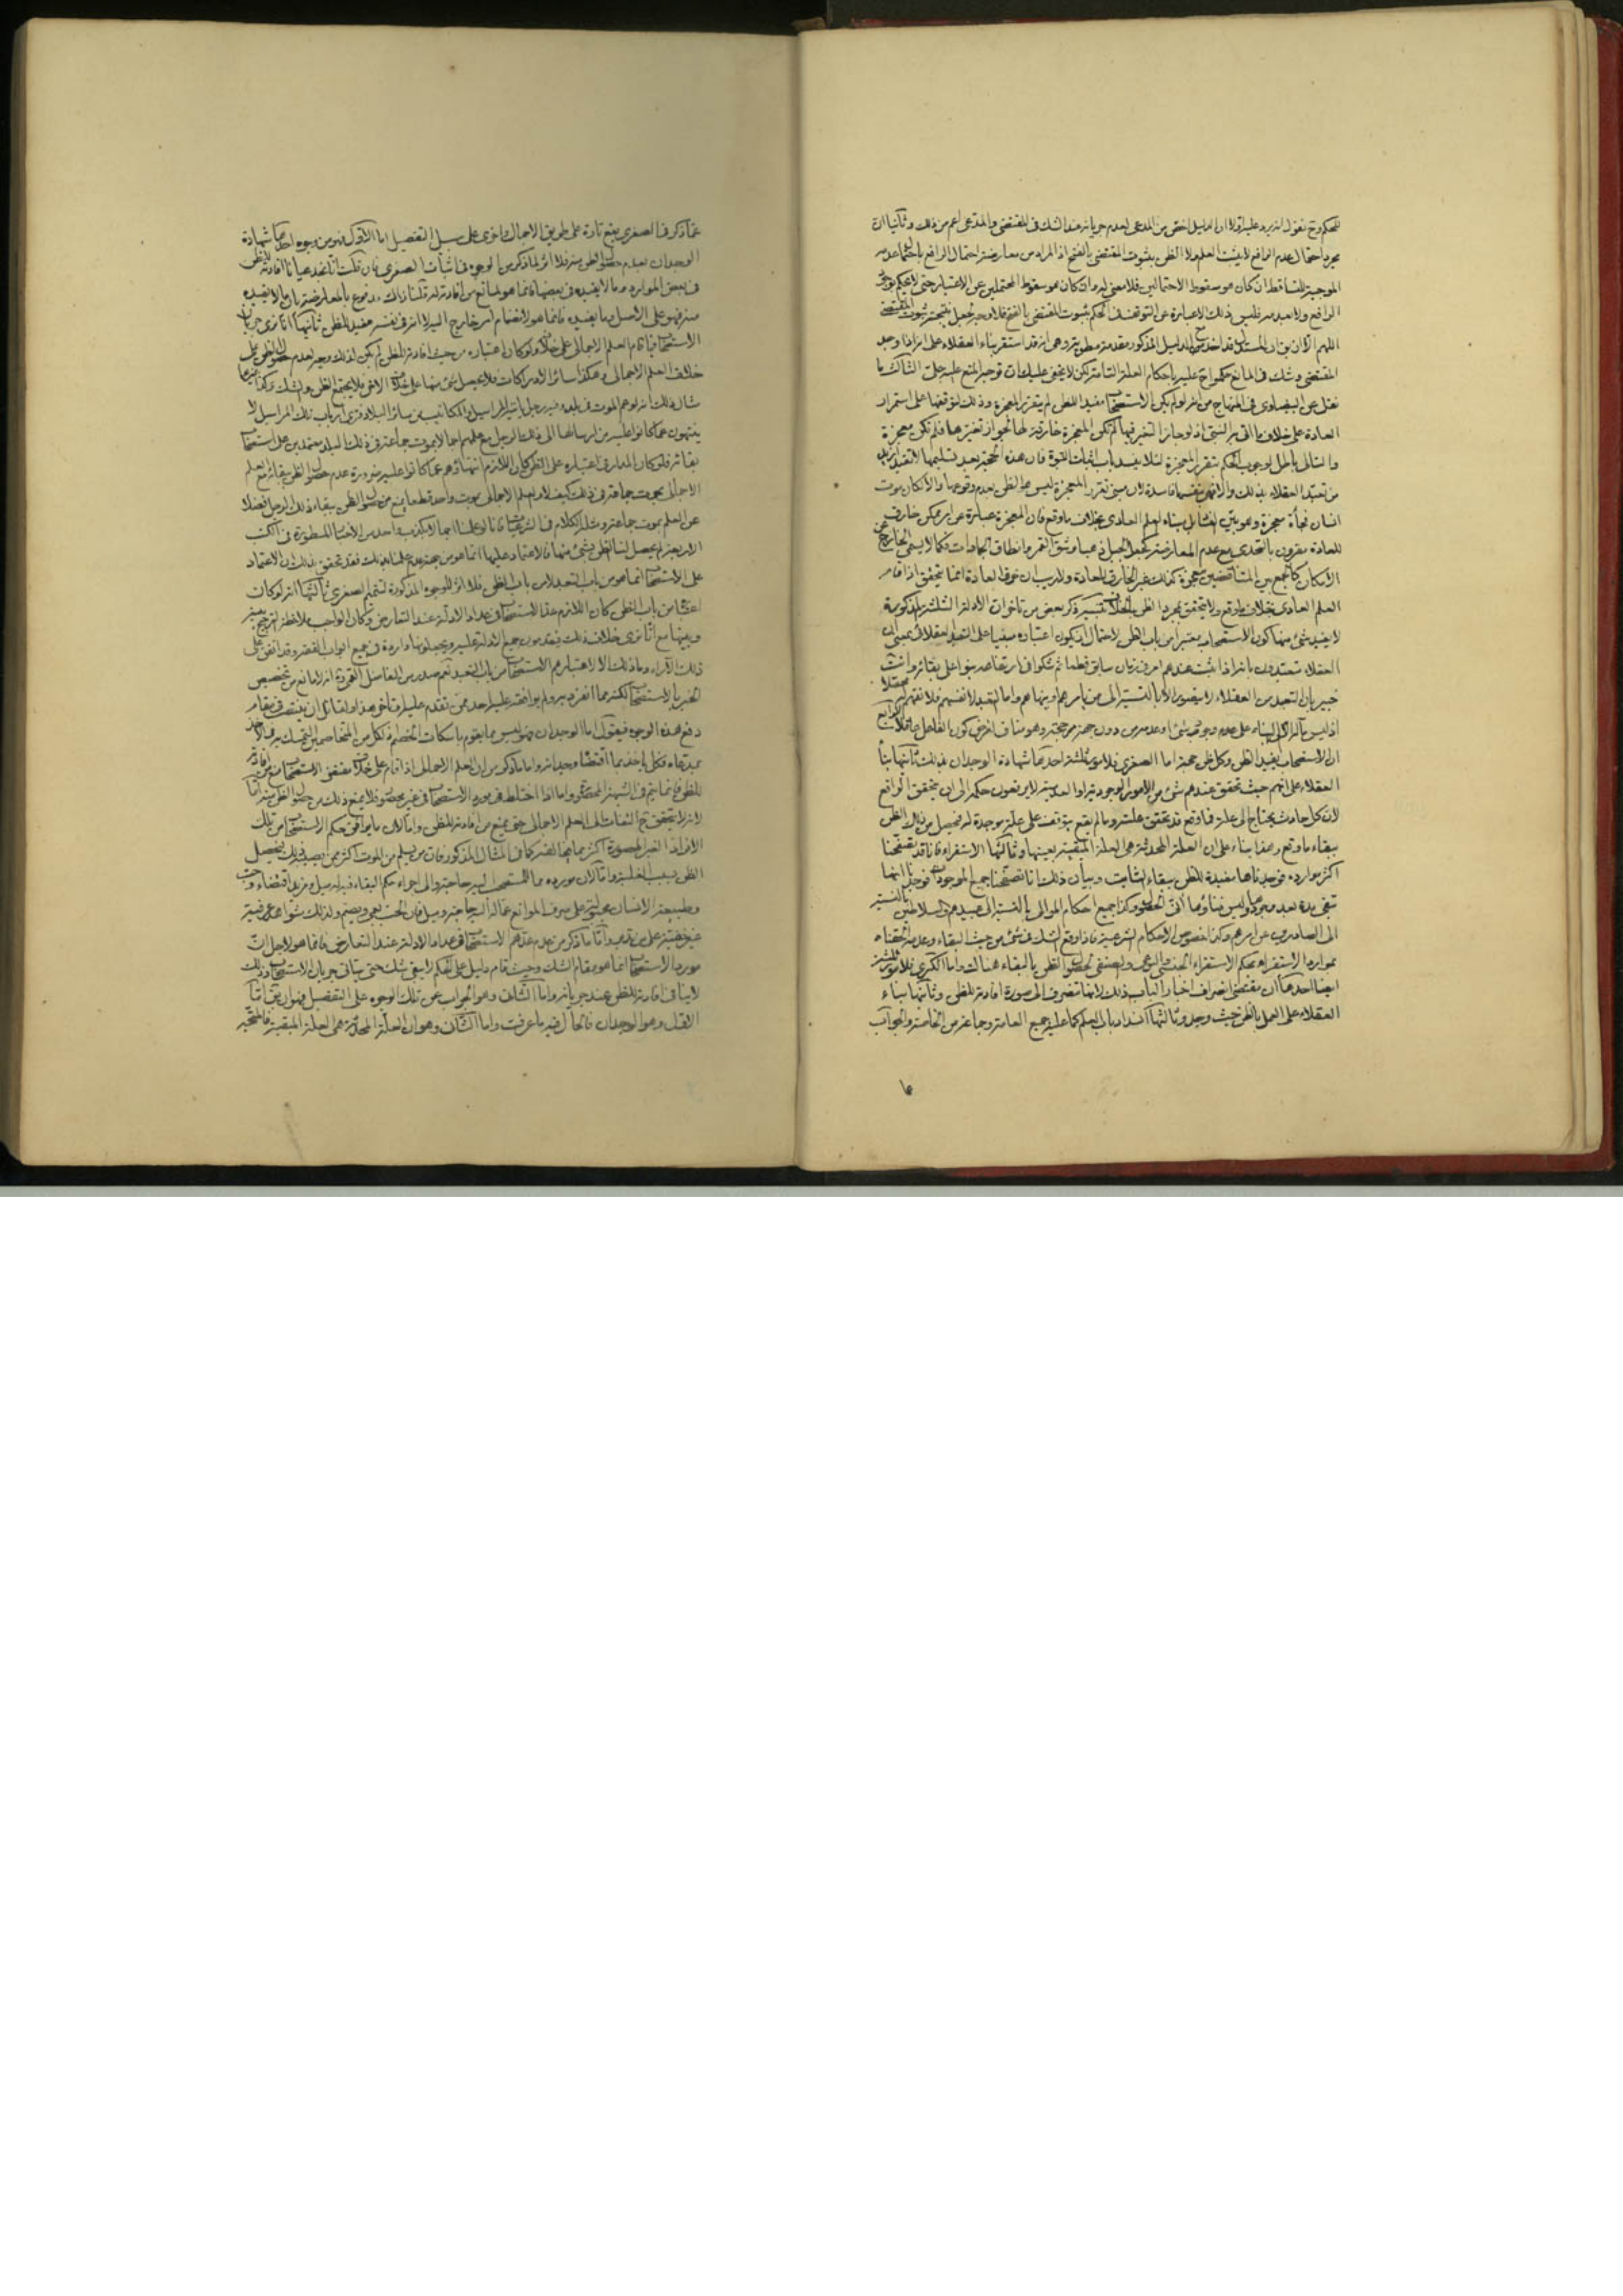 للحكم وح نقول انه يرد عليه اولا ان الدليل اخص من المدعى لعدم جريانه عند الشك في المقتضي والمدعى اعم من ذلك وثانيا ان
مجرد احتمال عدم الرافع لا يثبت العلم ولا الظن بثبوت المقتضى بالفتح اذ المراد من معارضة احتمال الرافع باحتمال عدمه
الموجبة للتساقط ان كان هو سقوط الاحتمالين فلا معنى له وان كان هو سقوط المحتملين عن الاعتبار حتى لا يحكم بوجود
الرافع ولا بعدمه فليس ذلك الا عبارة عن التوقف في الحكم بثبوت المقتضى بالفتح فلا وجه لجعل نتيجته ثبوت المقتضى
اللهم الا ان يق ان المستدل قد اخذ مع الدليل المذكور مقدمة مطوية وهي انه قد استقر بناء العقلاء على انه اذا وجد
المقتضي وشك في المانع حكموا ح عليه باحكام العلة التامة لكن لا يخفى عليك ان توجيه المنع عليه جلي الثالث ما
نقل عن البيضاوي في المنهاج من انه لو لم يكن الاستصحاب مفيدا للظن لم يتقرر المعجزة وذلك لتوقفها على استمرار
العادة على خلاف ما اتى به النبي اذ لو جاز التغير فيها لم تكن المعجزة خارقة لها لجواز تغيرها فلم تكن معجزة
والتالي باطل لوجوب الحكم بتقرر المعجزة لئلا ينسد باب اثبات النبوة فان هذه الحجة بعد تسليمها
من تعبد العقلاء بذلك والا فهي بنفسها فاسدة لان مبنى تقرر المعجزة ليس هو الظن بعدم وقوعها والا لكان موت
انسان فجأة معجزة وهو بيّن الفساد بل بناء العلم العادي بخلاف ما وقع فان المعجزة عبارة عن امر ممكن خارق
للعادة مقرون بالتحدي مع عدم المعارضة كجعل الجبل ذهبا وشق القمر وانطاق الجمادات فكما لا يسمى الخارج عن
الامكان كالجمع بين المتناقضين معجزة كذلك غير الخارق للعادة ولا ريب ان خرق العادة انما يتحقق اذا قام
العلم العادي بخلاف ما وقع ولا يتحقق بمجرد الظن بالخلاف ذكر بعض من تاخر ان الادلة الثلثة المذكورة
لا يفيد شيء منها كون الاستصحاب معتبرا من باب الظن لاحتمال ان يكون اعتباره مبنيا على التعبد العقلائي بمعنى ان
العقلاء متعبدون بانه اذا ثبت عندهم امر في زمان سابق قطعا ثم شكوا في ارتفاعه بنوا على بقائه وانت
خبير بان التعبد من العقلاء لا يتصور الا بالنسبة الى من يامرهم وينهاهم واما التعبد لانفسهم فلا نفهم له معنى محصلا
اذ ليس مآله الا الى البناء على عدم وجود شئ او عدمه من دون جهة مرجحة وهو مناف لفرض كون الفاعل عاقلا الرابع
ان الاستصحاب يفيد الظن وكل ظن حجة اما الصغرى فلامور ثلثة احدها شهادة الوجدان بذلك ثانيها بناء
العقلاء على انهم حيث تحقق عندهم شئ من الامور الوجودية او العدمية لا يرتفعون حكمه الى ان يتحقق الرافع
لان كل حادث يحتاج الى علة فما وقع قد تحقق علته وما لم يقع يتوقف على علة موجدة له فيحصل من ذلك الظن
ببقاء ما وقع وهذا بناء على ان العلة المحدثة هي العلة المبقية بعينها وثالثها الاستقراء فانا قد تصفحنا
اكثر موارده فوجدناها مفيدة للظن ببقاء الثابت وبيان ذلك انا تصفحنا جميع الموجودات فوجدنا انها
تبقى مدة بعد وجودها وليس فناؤها آنى الحصول وكذا جميع احكام الموالى بالنسبة الى عبيدهم والسلاطين بالنسبة
الى الصادرين عن امرهم وكذا خصوص الاحكام الشرعية فاذا وقع الشك في شئ من حيث البقاء وعدمه الحقناه
بموارد الاستقراء بحكم الاستقراء الجنسي والنوعي والصنفي لحصول الظن بالبقاء هنالك واما الكبرى فلامور ثلثة
ايضا احدها ان مقتضى انصراف اخبار الباب ذلك لانها تنصرف الى صورة افادته للظن وثانيها بناء
العقلاء على العمل بالظن حيث وجد وثالثها انسداد باب العلم كما عليه جميع العامة وجماعة من الخاصة والجواب
عما ذكر في الصغرى يقع تارة على طريق الاجمال واخرى على سبيل التفصيل اما الاول فهو من وجوه احدها شهادة
الوجدان بعدم حصول الظن منه فلا اثر لما ذكر من الوجوه في اثبات الصغرى فان قلت انا نجد عيانا افادته للظن
في بعض الموارد وما لا يفيده في بعضها فانما هو لمانع من افادته له قلنا ذلك مدفوع بالمعارضة بان ما لا يفيده
منه فهو على الاصل وما يفيده فانما هو لانضمام امر خارج اليه لا انه في نفسه مفيد للظن ثانيها انا نرى جريان
الاستصحاب فيما قام العلم الاجمالي على خلافه ولو كان اعتباره من حيث افادته للظن لم يكن لذلك وجه لعدم حصول الظن على
خلاف العلم الاجمالي وهكذا سائر الادراكات فلا يحصل شئ منها على خلاف الاخر فلا يجتمع الظن والشك وكذا غيرهما
مثال ذلك انه لو هم الموت في بلد وفيه رجل ياتيه المراسيل والمكاتيب من سائر البلاد فنرى ارباب تلك المراسيل لا
ينتهون عما كانوا عليه من ارسالها الى ذلك الرجل مع علمهم اجمالا بموت جماعة في ذلك البلد معتمدين على استصحاب
بقائه فلو كان المدار في اعتباره على الظن لكان اللازم انتهاؤهم عما كانوا عليه ضرورة عدم حصول الظن ببقائه مع العلم
الاجمالي بموت جماعة في ذلك كيف لا والعلم الاجمالي بموت واحد قطعا يمنع من حصول الظن ببقاء ذلك الرجل فضلا
عن العلم بموت جماعة ومثله الكلام في الشرعيات فانا لو علمنا اجمالا بكذب واحد من الاخبار المسطورة في الكتب
الاربعة لم يحصل لنا الظن بشئ منها فالاعتماد عليها انما هو من جهة فقد تحقق بذلك ان الاعتماد
على الاستصحاب انما هو من باب التعبد لا من باب الظن فلا اثر للوجوه المذكورة لتتميم الصغرى ثالثها انه لو كان
اعتباره من باب الظن كان اللازم عد الاستصحاب في عداد الادلة عند التعارض وكان الواجب ملاحظة الترجيح بينه
وبينها مع انا نرى خلاف ذلك فيقدمون جميع الادلة عليه ويجعلونها واردة في جميع ابواب الفقه وقد اتفق على
ذلك الآراء وما ذلك الا لاعتبارهم الاستصحاب من باب التعبد نعم صدر من الفاضل القمي ره انه لا مانع من تخصيص
الخبر بالاستصحاب لكنه مما انفرد به ولم يوافقه عليه احد ممن تقدم عليه او تاخر هذا ولقائل ان ينتصب في مقام
دفع هذه الوجوه فيقول اما الوجدان فهو ليس مما يقوم باسكات الخصم اذ لكل من المتخاصمين التمسك به
بمدعاه فكل ياخذ بما اقتضاه وجدانه واما ما ذكر من ان العلم الاجمالي اذا قام على خلاف مقتضى الاستصحاب يمنع من افادته
للظن فانما يتم في الشبهة المحصورة واما اذا اختلط في مورد الاستصحاب في غير محصور فلا يمنع ذلك من حصول الظن منه اما
لانه لا يتحقق ح التفات الى العلم الاجمالي حتى يمنع من افادته للظن واما لان ما يوافق حكم الاستصحاب من تلك
الافراد الغير المحصورة اكثر مما يخالفه كما في المثال المذكور فان من يسلم من الموت اكثر ممن يصيبه ذلك فيحصل
الظن بسبب الغلبة واما لان مورده مما للمستصحب اليه حاجة والى اجراء حكم البقاء فيه له ميل ومزيد اقتضاء وحب
وطبيعة الانسان مجبولة على صرف الموانع عما له اليه حاجة وميل فان الحب يعمي ويصم ولذلك شواهد عرفية
غير خفية على من تدبر واما ما ذكر من عدم عدهم الاستصحاب في عداد الادلة عند التعارض فانما هو لاجل ان
مورد الاستصحاب انما هو مقام الشك وحيث قام دليل على الحكم لا يبقى شك حتى يتاتى جريان الاستصحاب وذلك
لا ينافي افادته للظن عند جريانه واما الثاني وهو الجواب عن تلك الوجوه على التفصيل فهو ان يق اما
الاول وهو الوجدان فالحال فيه ما عرفت واما الثاني وهو ان العلة المحدثة هي العلة المبقية فالمتجه